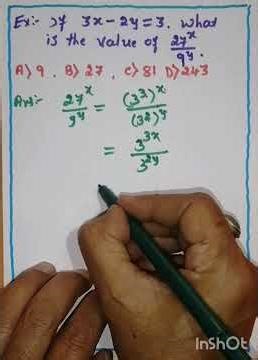 Ex:- If 3x-2y=3. what
is the value of 27^x/9^y.
A) 9. B) 27, C) 81 D) 243
Ans:- 27^x/9^y = (3^3)^x/(3^2)^y
= 3^3x/3^2y
InShOt